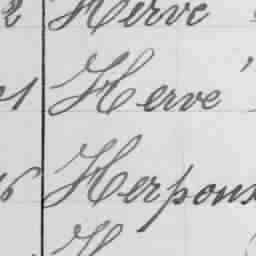 2 Hervé
1 Hervé
6 Herpoux